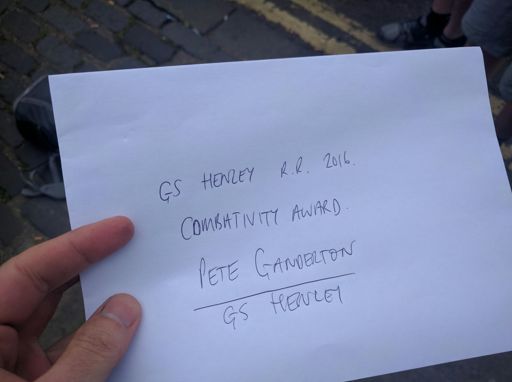 GS HENLEY R.R. 2016.
COMBATIVITY AWARD.
PETE GANDERTON
GS HENLEY